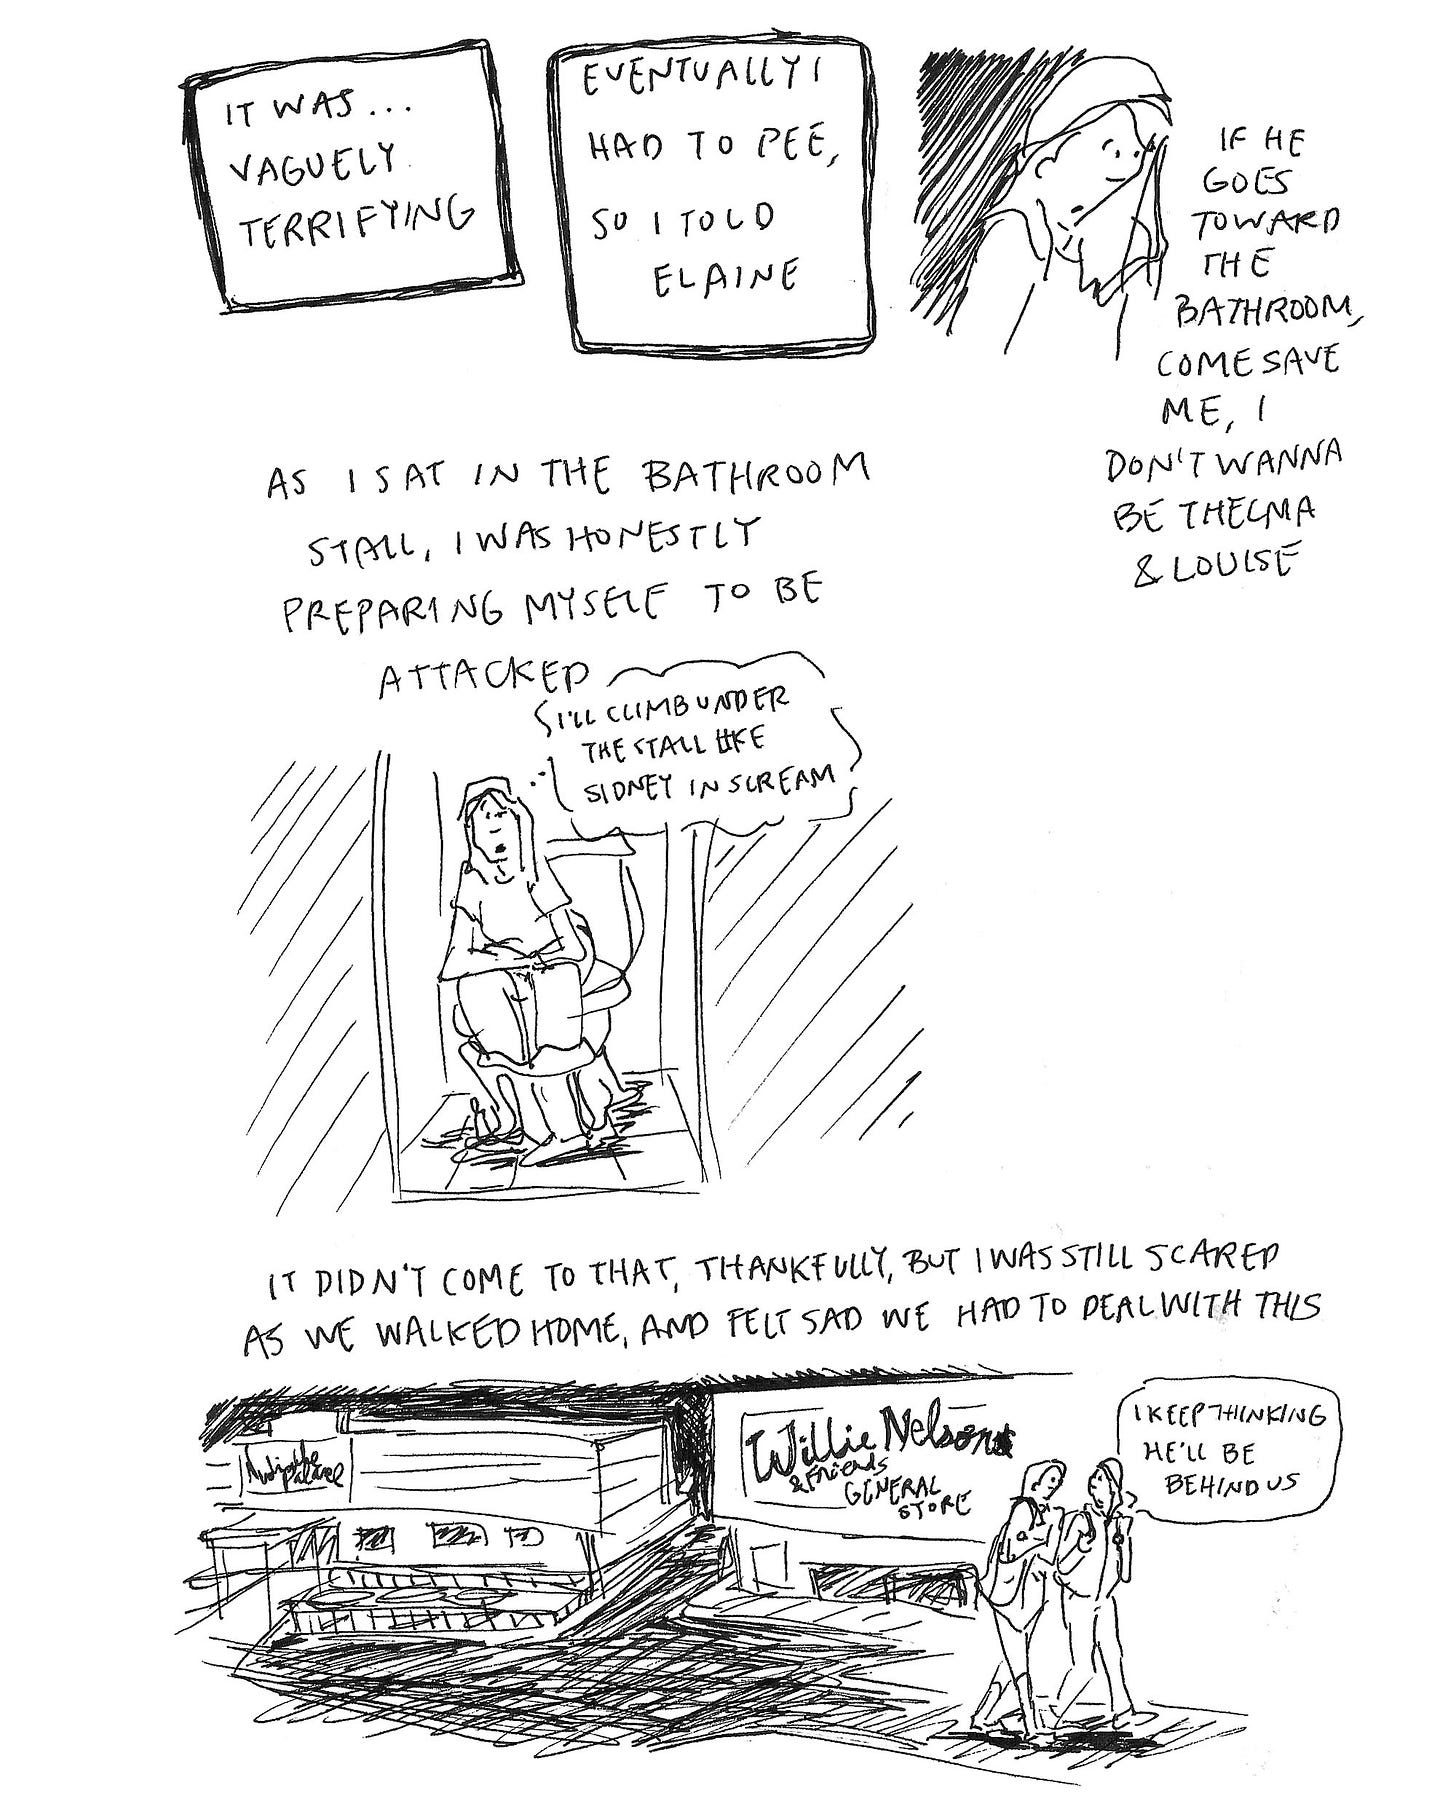 IT WAS...
VAGUELY
TERRIFYING
EVENTUALLY I
HAD TO PEE,
SO I TOLD
ELAINE
IF HE
GOES
TOWARD
THE
BATHROOM,
COME SAVE
ME, I
DON'T WANNA
BE THELMA
& LOUISE
AS I SAT IN THE BATHROOM
STALL, I WAS HONESTLY
PREPARING MYSELF TO BE
ATTACKED
I'LL CLIMB UNDER
THE STALL LIKE
SIDNEY IN SCREAM
IT DIDN'T COME TO THAT, THANKFULLY, BUT I WAS STILL SCARED
AS WE WALKED HOME, AND FELT SAD WE HAD TO DEAL WITH THIS
Willie Nelson
& Friends
GENERAL
STORE
I KEEP THINKING
HE'LL BE
BEHIND US